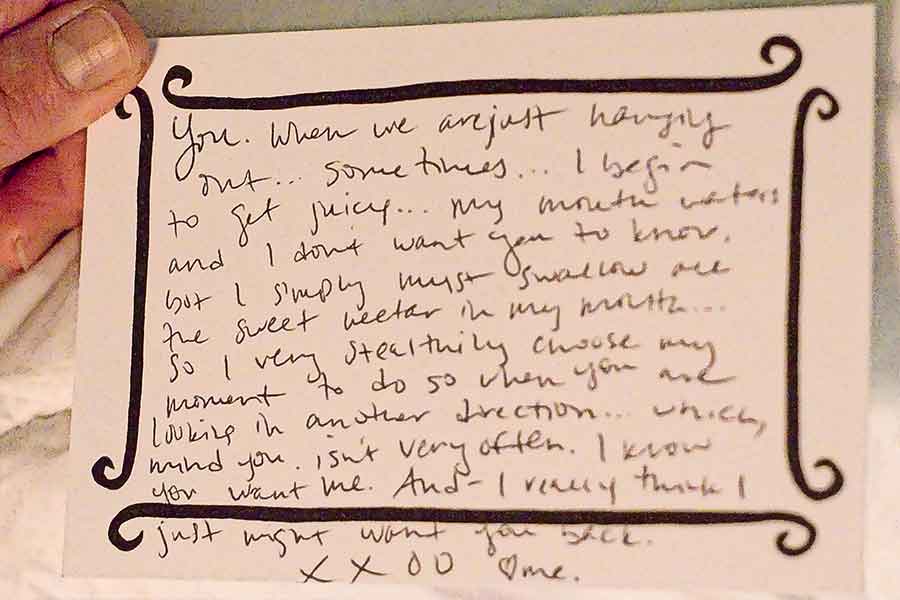 You. When we are just hanging
out... sometimes... I begin
to get juicy... my mouth waters
and I don't want you to know.
but I simply must swallow all
the sweet nectar in my mouth...
So I very stealthily choose my
moment to do so when you are
looking in another direction... which,
mind you. isn't very often. I know
you want me. And - I really think I
just might want you back.
X X O O ♡me.